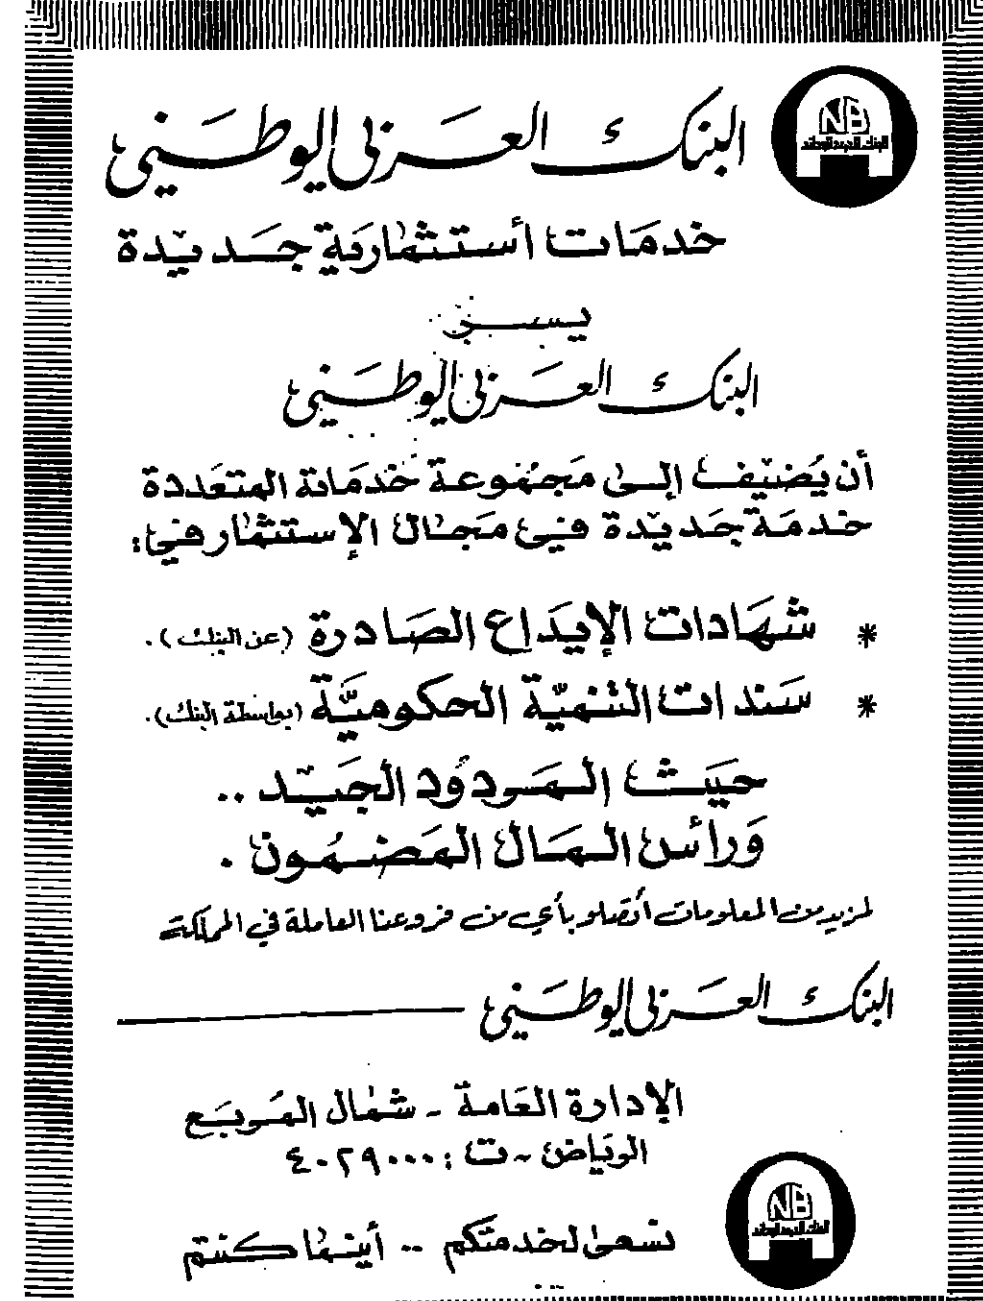 البنك العربي الوطني
NB
البنك العربي الوطني
خدمات أستثمارية جديدة
يسر
البنك العربي الوطني
أن يُضيف إلى مَجمُوعة خَدماته المتعَددة
خدمَة جَديدة في مَجال الإستثمار في:
* شهَادات الإيدَاع الصَادرة (عن البنك).
* سَندات التنميّة الحكوميَّة (بواسطة البنك).
حيَث المَردوُد الجَيّد ..
وَرأس المَال المَضمُون .
لمزيد من المعلومات أتصلو بأي من فروعنا العاملة في المملكة
البنك العربي الوطني
الإدارة العَامة - شمَال المَربَع
الريَاض - ت : ٤٠٢٩٠٠٠
NB
البنك العربي الوطني
نسعى لخدمتكم .. أينما كنتم